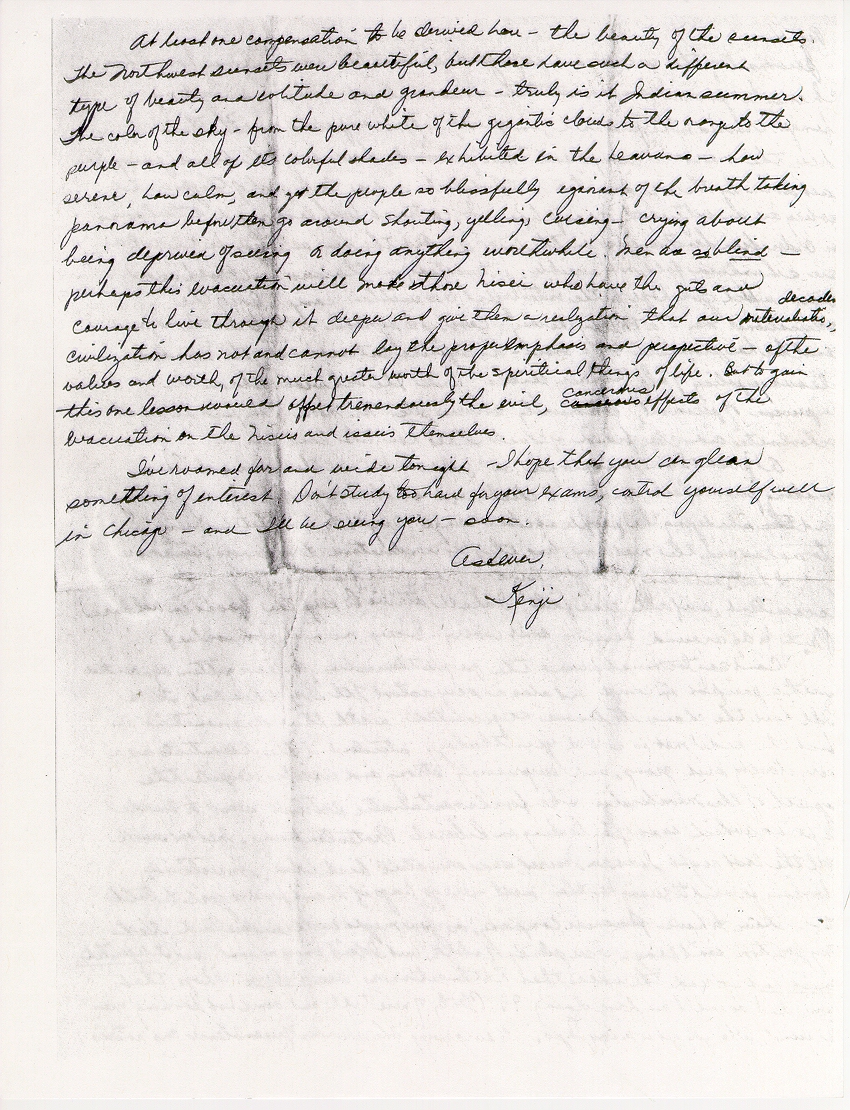 At least one compensation to be derived here – the beauty of the sunsets.
The Northwest sunsets were beautiful, but these have such a different
type of beauty and solitude and grandeur – truly is it Indian summer.
The color of the sky – from the pure white of the gigantic clouds to the orange to the
purple – and all of its colorful shades – exhibited in the heavens – how
serene, how calm, and yet the people so blissfully ignorant of the breath taking
panorama before them go around shouting, yelling, cursing – crying about
being deprived of seeing or doing anything worthwhile. Men are so blind –
perhaps this evacuation will make those Nisei who have the guts and
courage to live through it deeper and give them a realization that our decades materialistic,
civilization has not and cannot lay the proper emphasis and perspective – of the
values and worth, of the much greater worth of the spiritical things of life. But to gain
this one lesson would offset tremendously the evil, cancerous effects of the
evacuation on the niseis and isseis themselves.
I've roamed far and wide tonight – I hope that you can glean
something of interest. Don't study too hard for your exams, control yourself well
in Chicago – and I'll be seeing you – soon.
As ever,
Kenji